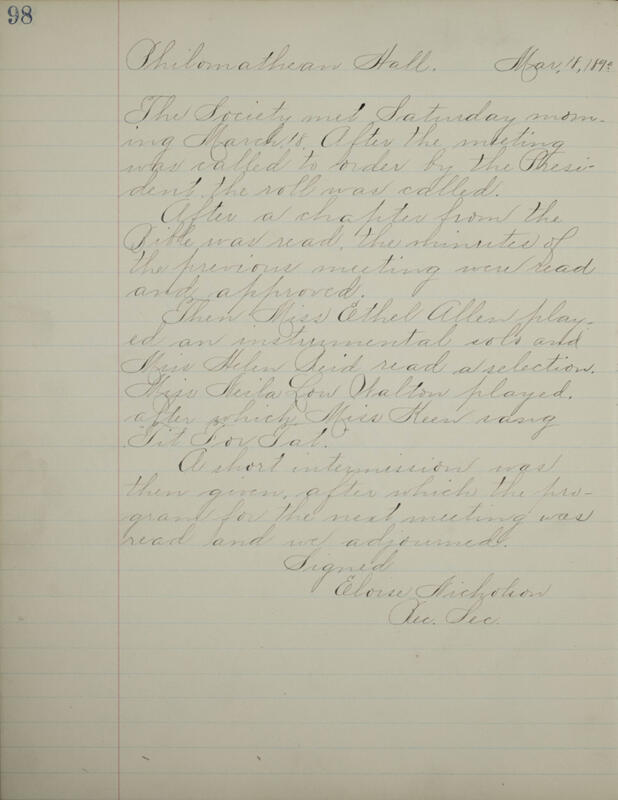 98
Philomathean Hall. Mar, 18, 189
The Society met Saturday morn-
ing March 18. After the meeting
was called to order by the Presi-
dent, the roll was called.
After a chapter from the
Bible was read, the minutes of
the previous meeting were read
and approved.
Then Miss Ethel Allen play-
ed an instrumental solo and
Miss Helen Reid read a selection.
Miss Neila Lou Walton played,
after which Miss Keen sang
Tit For Tat.
A short intermission was
then given, after which the pro-
gram for the next meeting was
read and we adjourned.
Signed
Eloise Nicholson
Rec. Sec.